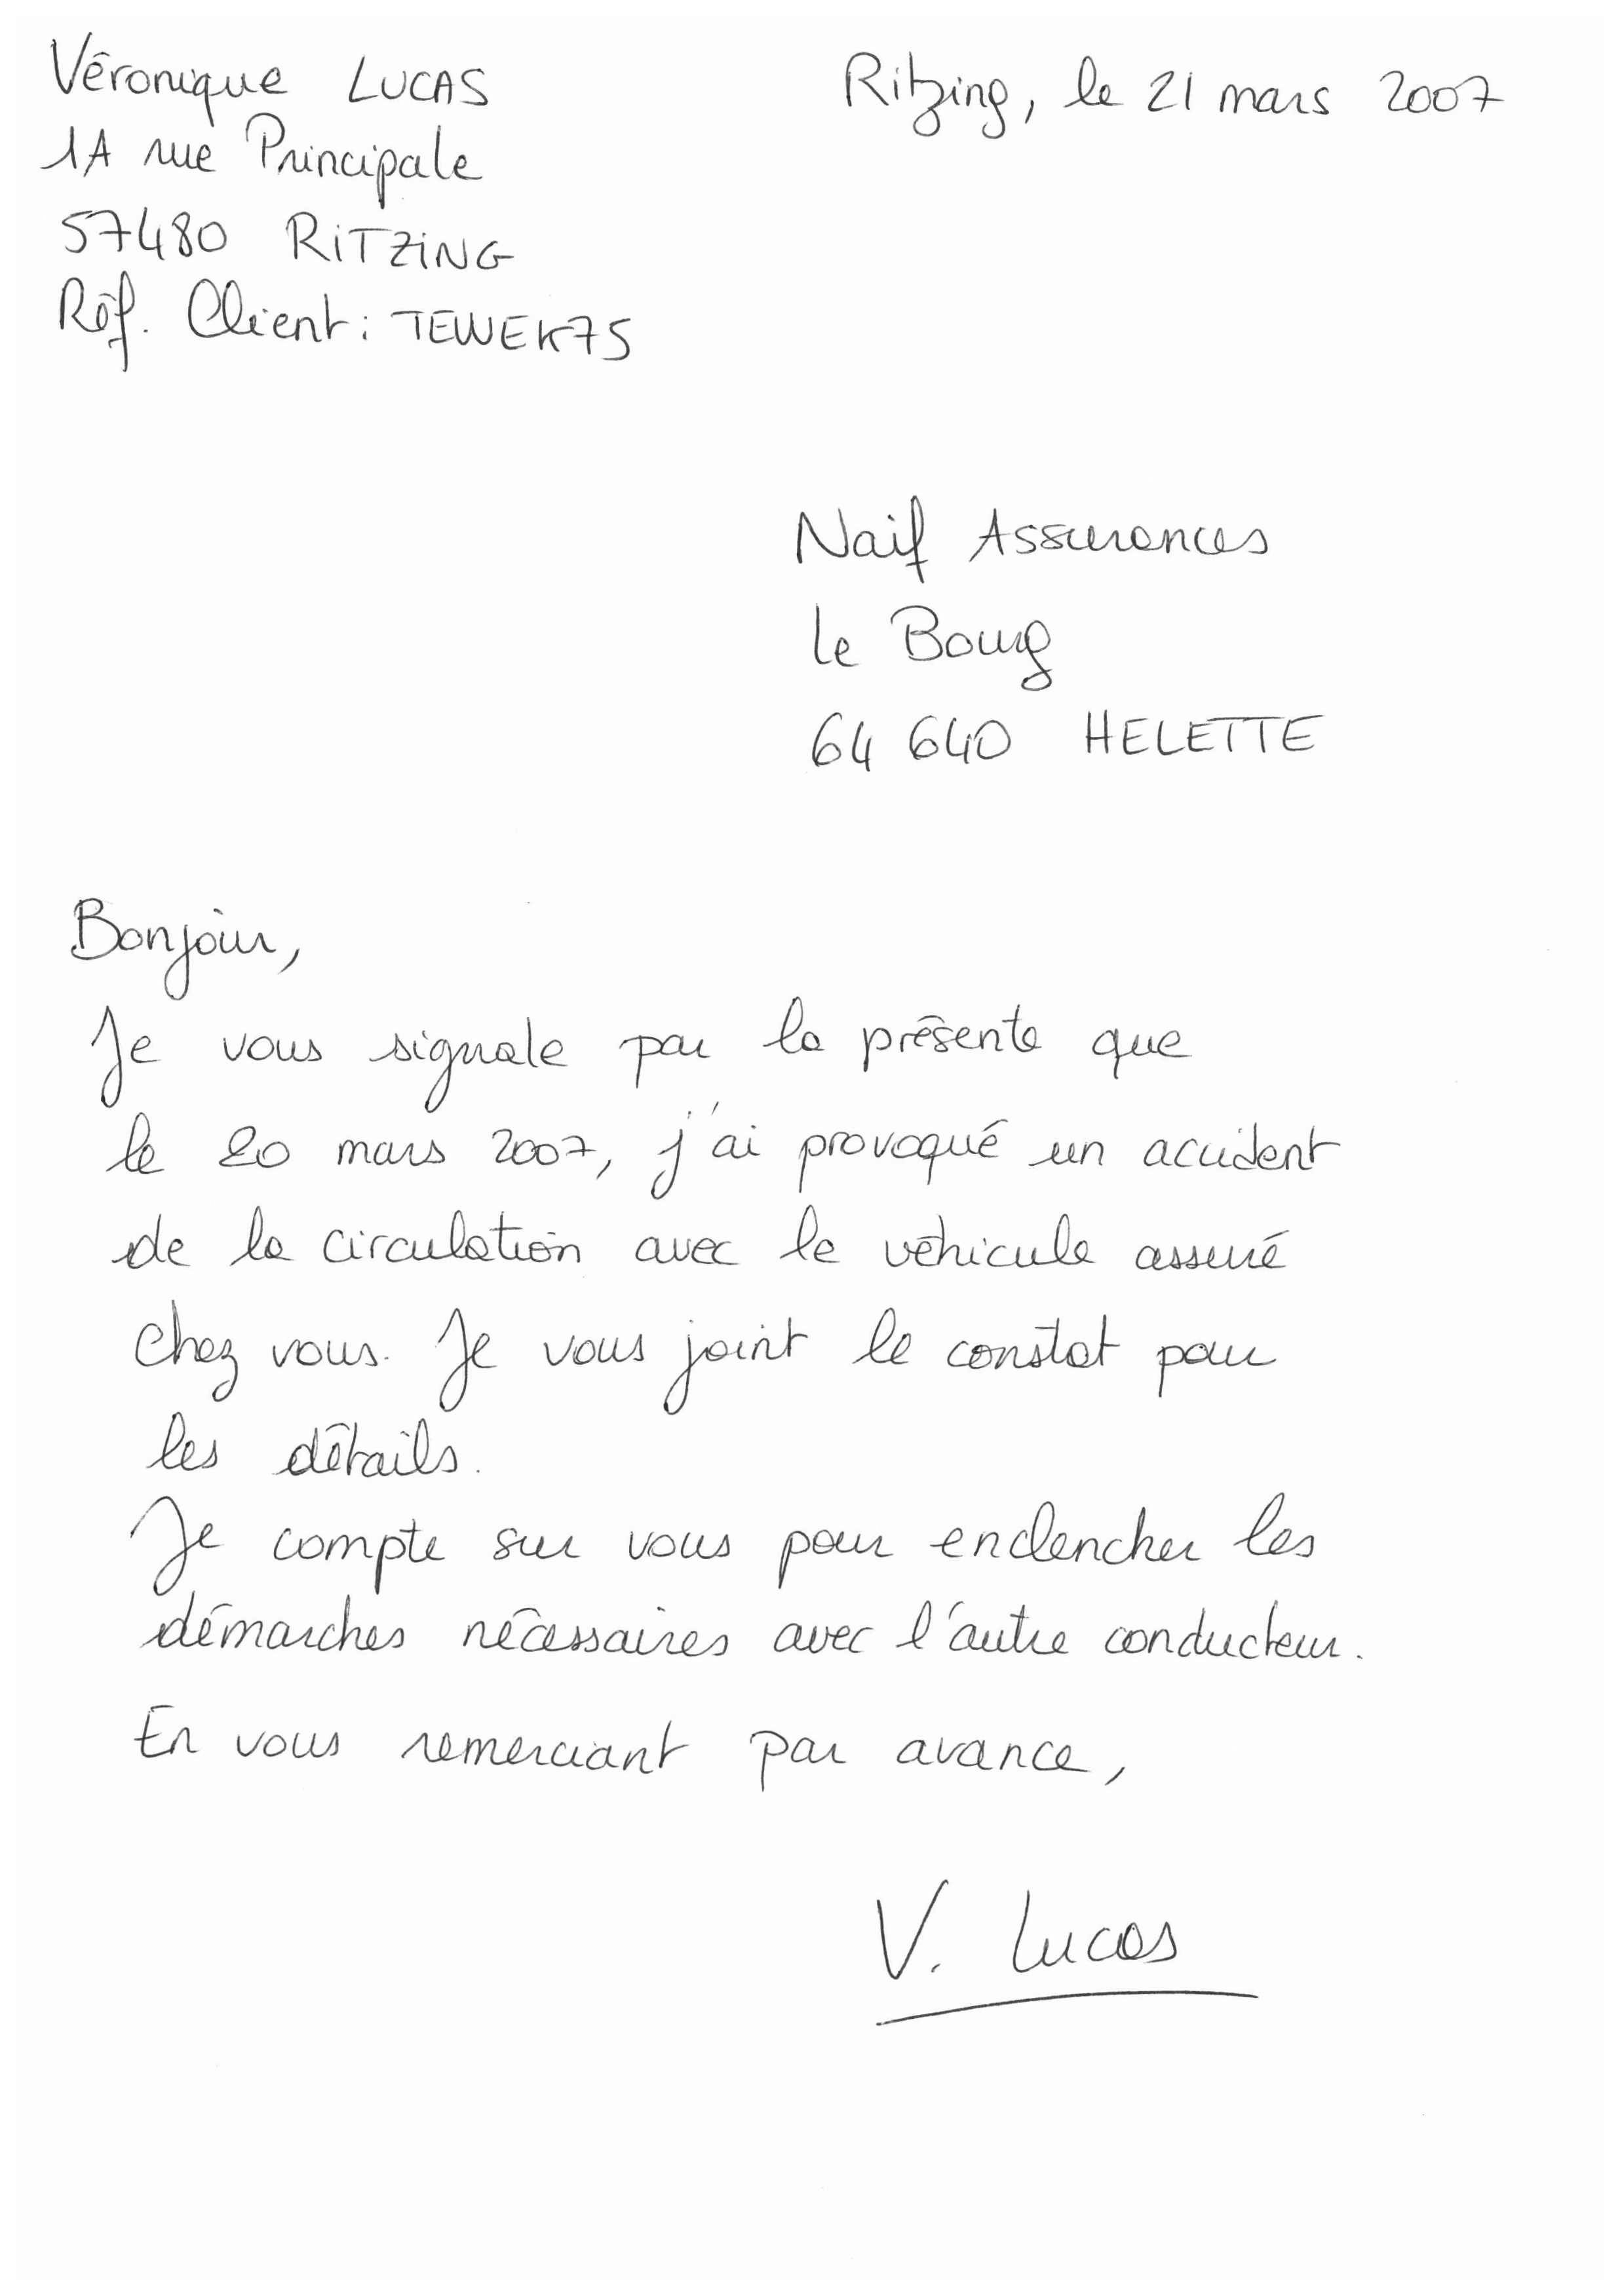 Véronique LUCAS
Ritzing, le 21 mars 2007
1A rue Principale
57480 RITZING
Réf. Client : TEWEK75
Naif Assurances
Le Bourg
64 640 HELETTE
Bonjour,
Je vous signale par la présente que
le 20 mars 2007, j'ai provoqué un accident
de la circulation avec le véhicule assuré
chez vous. Je vous joint le constat pour
les détails.
Je compte sur vous pour enclencher les
démarches nécessaires avec l'autre conducteur.
En vous remerciant par avance,
V. Lucas